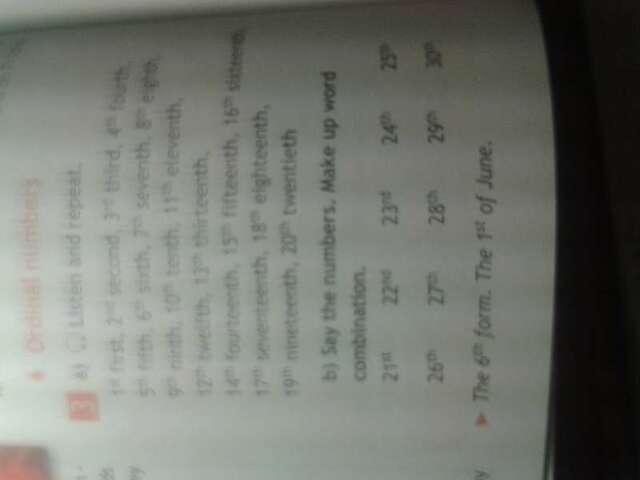 ♦ Ordinal numbers
3 a) Listen and repeat.
1st first, 2nd second, 3rd third, 4th fourth,
5th fifth, 6th sixth, 7th seventh, 8th eighth,
9th ninth, 10th tenth, 11th eleventh,
12th twelfth, 13th thirteenth,
14th fourteenth, 15th fifteenth, 16th sixteenth,
17th seventeenth, 18th eighteenth,
19th nineteenth, 20th twentieth
b) Say the numbers. Make up word
combination.
21st 22nd 23rd 24th 25th
26th 27th 28th 29th 30th
► The 6th form. The 1st of June.